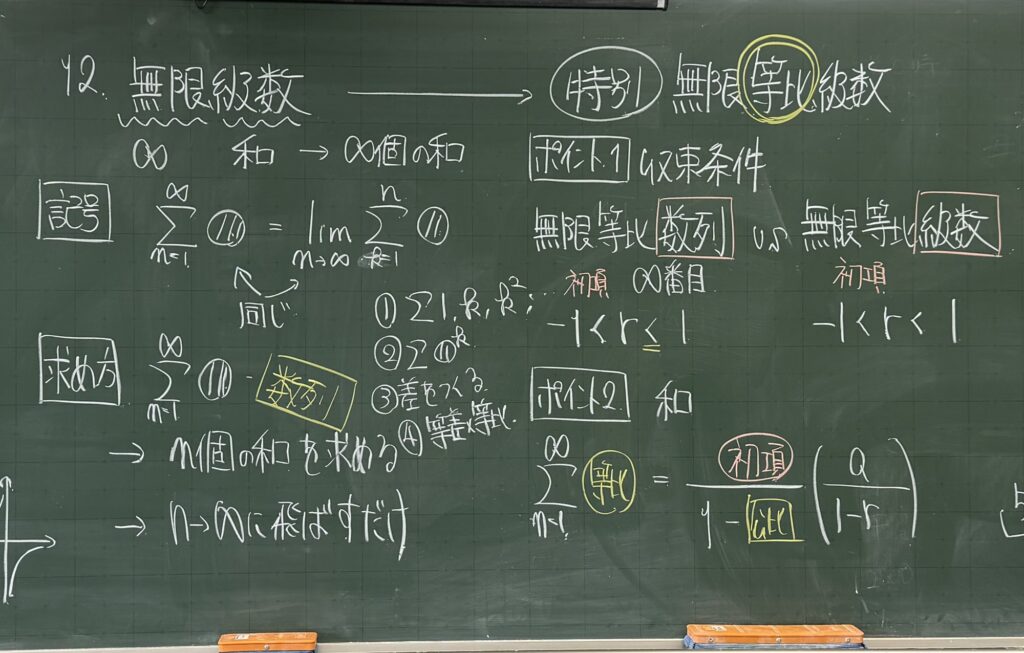 12. 無限級数 ⟶ 特別 無限等比級数
∞ 和 → ∞個の和
記号 ∞∑n=1 = lim n→∞ n∑k=1
同じ
求め方 ∞∑n=1 数列
① ∑1, k, k², …
② ∑a^k
③ 差をつくる
④ 等差×等比.
→ n個の和を求める
→ n→∞に飛ばすだけ
ポイント1 収束条件
無限等比数列 vs 無限等比級数
初項 ∞番目 初項
-1<r≤1 -1<r<1
ポイント2 和
∞∑n=1 等比 = 初項/1-公比 (a/1-r)